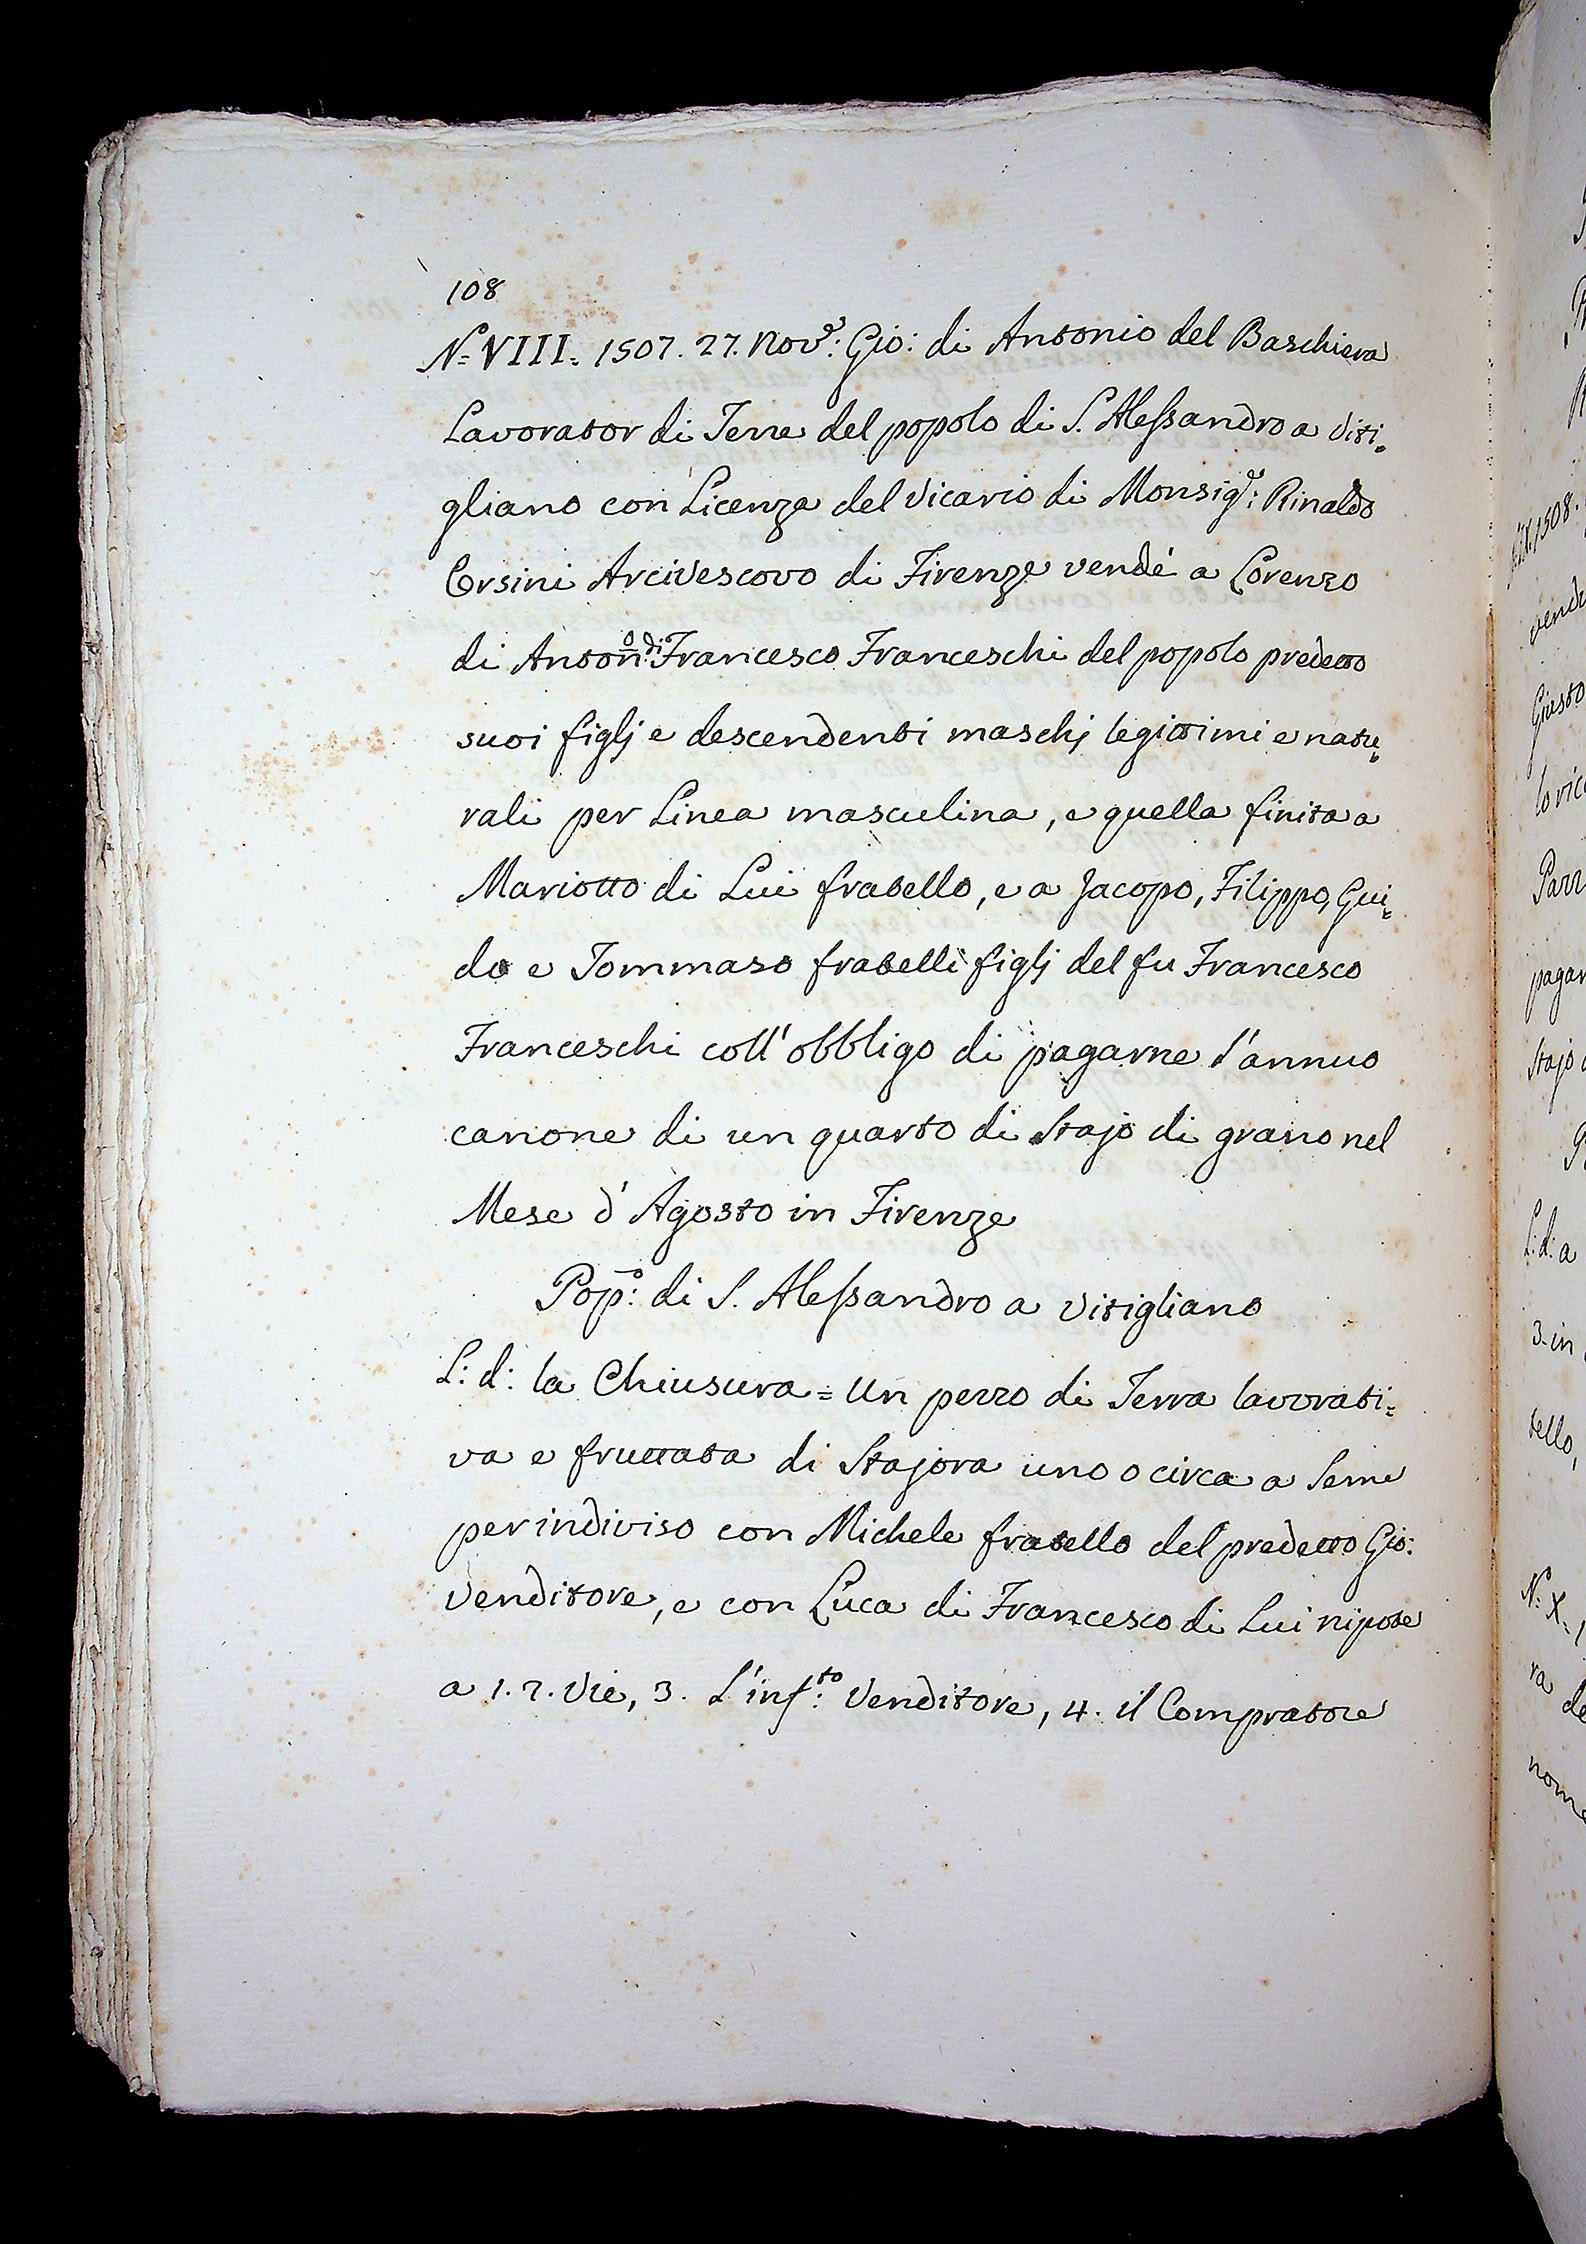 108
N.º VIII. 1507. 27. Nov.e: Gio: di Antonio del Baschiera
Lavorator di Terre del popolo di S. Alessandro a Viti=
gliano con Licenza del Vicario di Monsig.e: Rinaldo
Orsini Arcivescovo di Firenze vendé a Lorenzo
di Anton.o di Francesco Franceschi del popolo predetto
suoi figlj e descendenti maschj legittimi e natu=
rali per Linea masculina, e quella finita a
Mariotto di Lui fratello, e a Jacopo, Filippo, Gui=
do e Tommaso fratelli figlj del fu Francesco
Franceschi coll'obbligo di pagarne l'annuo
canone di un quarto di Stajo di grano nel
Mese d'Agosto in Firenze
Pop.o: di S. Alessandro a Vitigliano
L: d: la Chiusura = Un pezzo di Terra lavorati=
va e fruttata di Stajora uno o circa a Seme
per indiviso con Michele fratello del predetto Gio:
Venditore, e con Luca di Francesco di Lui nipote
a 1. 2. Vie, 3. L'inf.to: Venditore, 4. il Compratore
1508.
Giusto
pagar
Stajo
L: d: a
3. in
tello,
N.º X.
ra de
nome